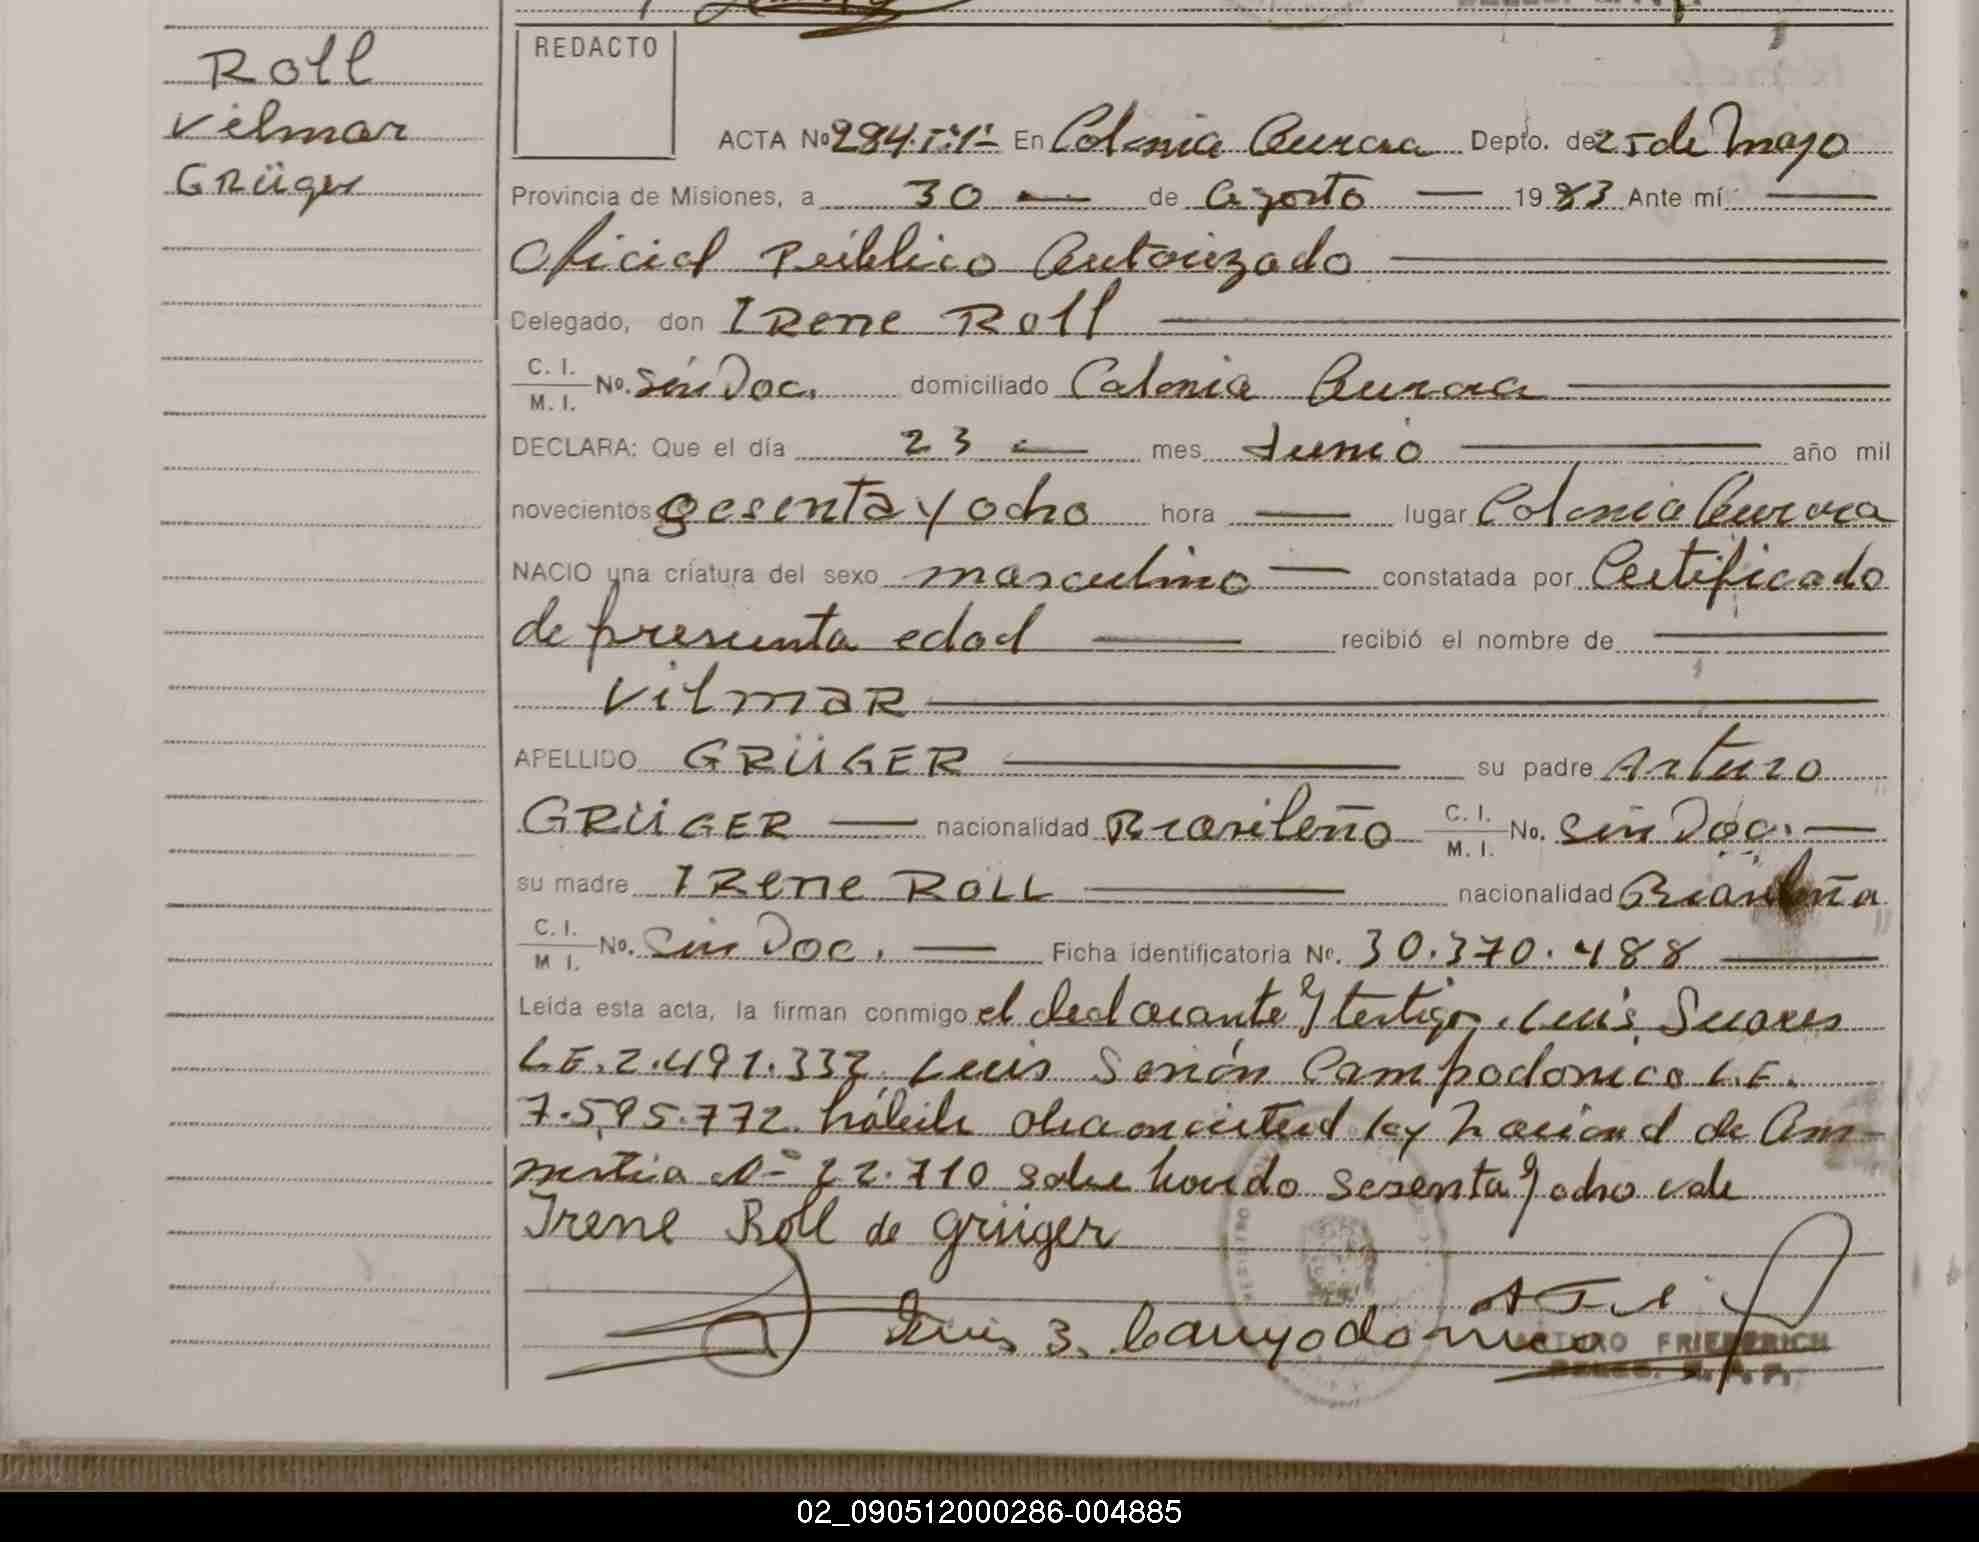 Roll
Vilmar
Grüger
REDACTO
ACTA Nº 284.Tº1º En Colonia Aurora Depto. de 25 de Mayo
Provincia de Misiones, a 30 — de agosto — 1983 Ante mí —
Oficial Público Autorizado —
Delegado, don Irene Roll —
C. I.
M. I. Nº. sin Doc. domiciliado Colonia Aurora —
DECLARA: Que el día 23 — mes Junio — año mil
novecientos sesenta y ocho hora — lugar Colonia Aurora
NACIO una criatura del sexo masculino — constatada por Certificado
de presunta edad — recibió el nombre de —
Vilmar —
APELLIDO GRÜGER — su padre Arturo
GRÜGER — nacionalidad Brasileño C. I. M. I. No. sin Doc. —
su madre Irene Roll — nacionalidad Brasileña
C. I.
M I. Nº. Sin Doc. — Ficha identificatoria Nº. 30.370.488 —
Leída esta acta, la firman conmigo el declarante y testigos Luis Suares
L.E. 2.491.332 Luis Simón Campodonico L.E.
7.595.772 hábile ley Nacional de Am-
nistia Nº 22.710 sobre borrado sesenta y ocho vale
Irene Roll de grüger
Luis S. Campodonico
ARTURO FRIEDERICH
02_090512000286-004885